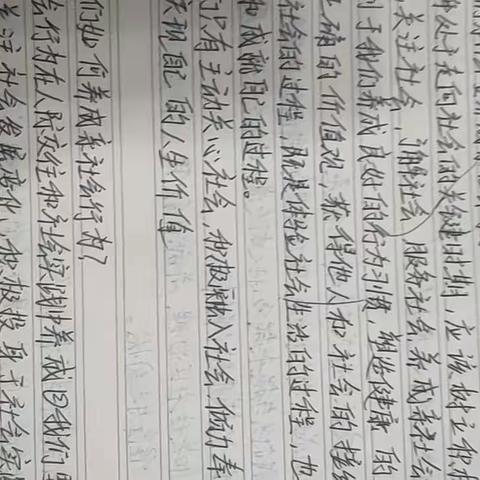 处于走向社会的关键时期，应该树立积极
关注社会，了解社会，服务社会，养成亲社会
于我们养成良好的行为习惯，塑造健康的
确的价值观，获得他人和社会的接纳
社会的过程，既是体验社会生活的过程，也
和成就自己的过程。
只有主动关心社会，积极融入社会，倾力奉
实现自己的人生价值
们如何养成亲社会行为？
会行为在人际交往和社会实践中养成。①我们要
关注社会发展变化，积极投身于社会实